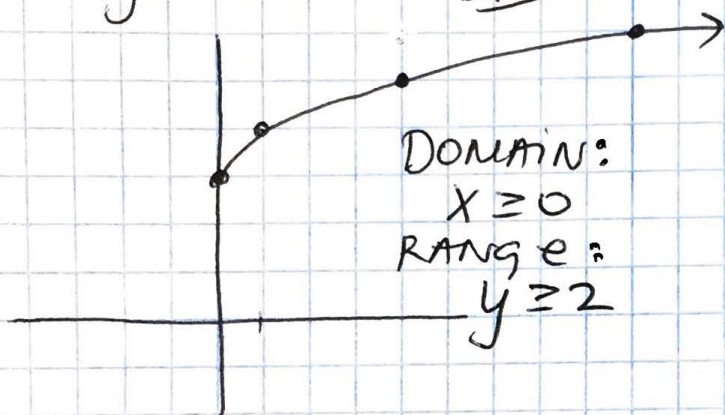 DOMAIN:
X ≥ 0
RANGE:
y ≥ 2